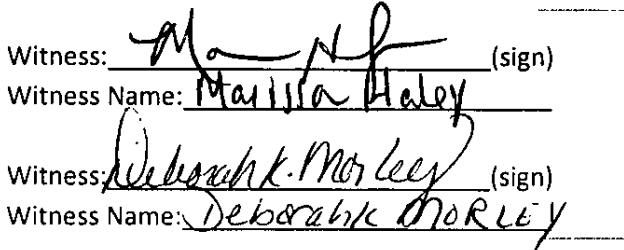 Witness: (sign)
Witness Name: Marissa Haley
Witness: Deborah K. Morley (sign)
Witness Name: Deborah K MORLEY